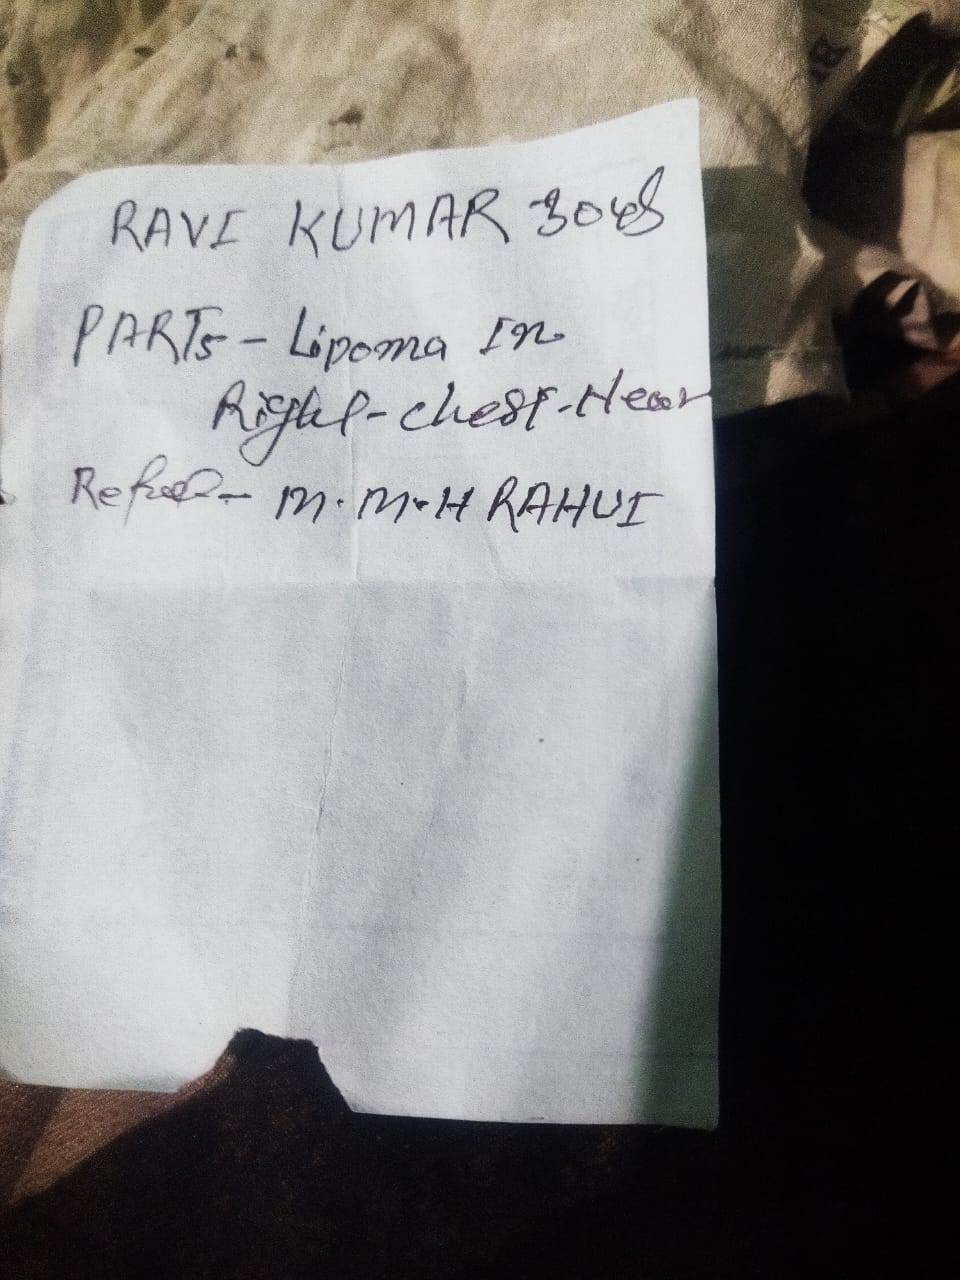 RAVI KUMAR
PARTs - Lipoma In
Right - chest - Near
M.M.H RAHUI